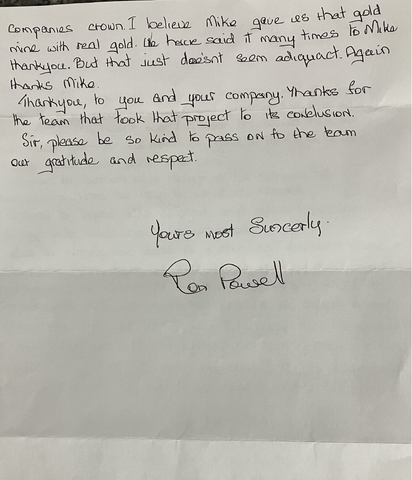 Companies crown. I believe Mike gave us that gold
mine with real gold. We have said it many times to Mike
thankyou. But that just doesn't seem adiquact. Again
thanks Mike.
Thankyou, to you and your company. Thanks for
the team that took that project to its conclusion.
Sir, please be so kind to pass on to the team
our gratitude and respect.
Yours most Sincerly.
Ron Powell